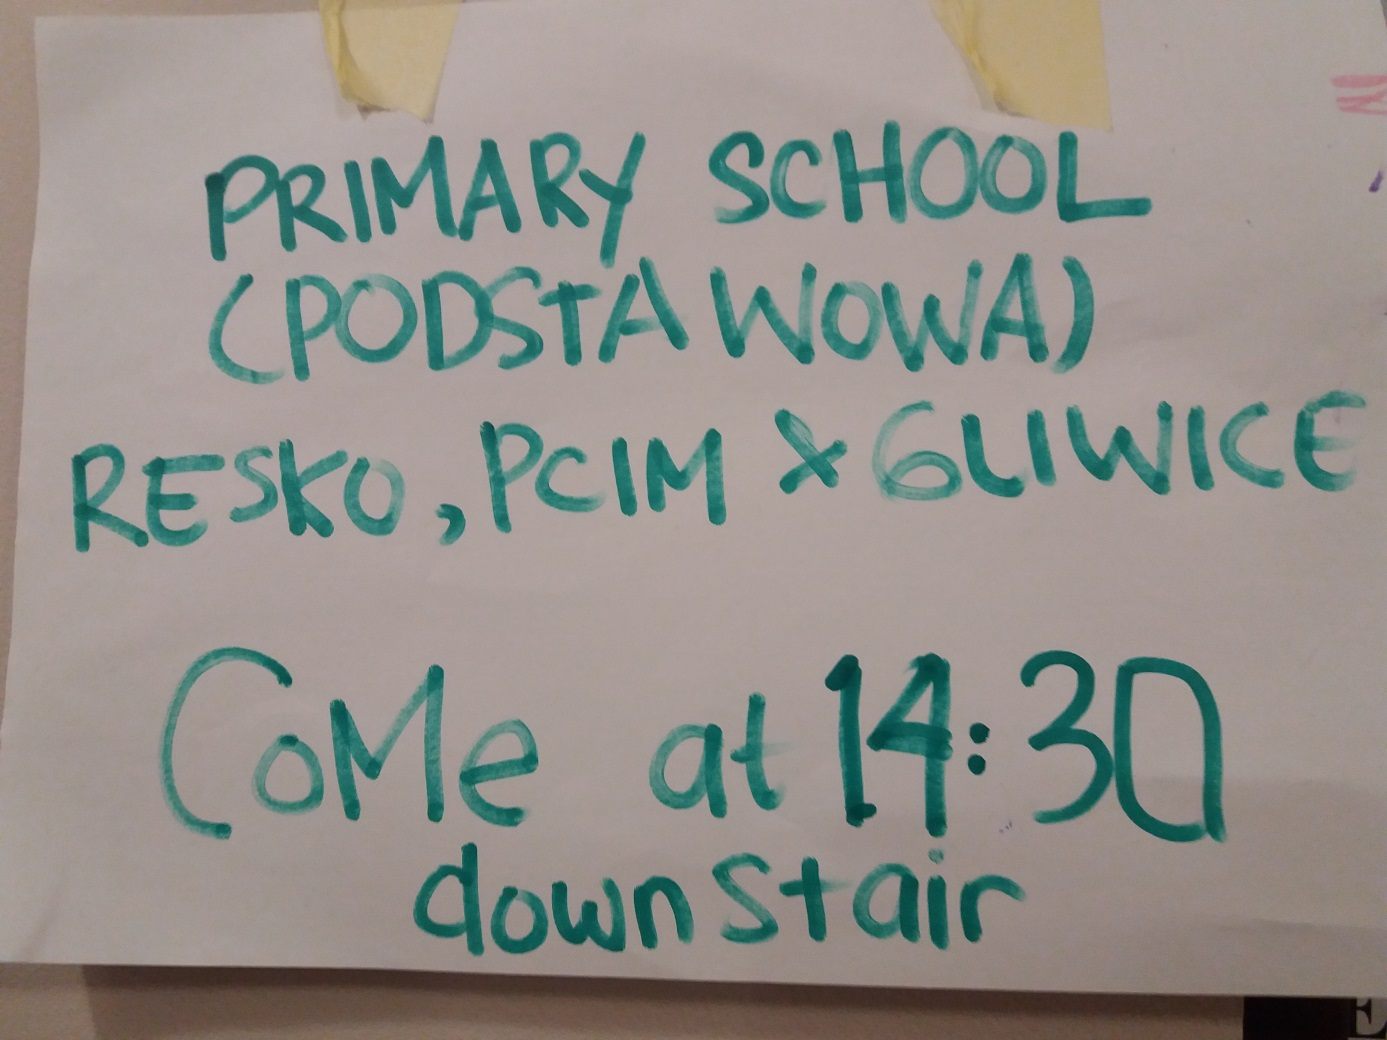 PRIMARY SCHOOL
(PODSTAWOWA)
RESKO, PCIM & GLIWICE
CoMe at 14:30
downstair